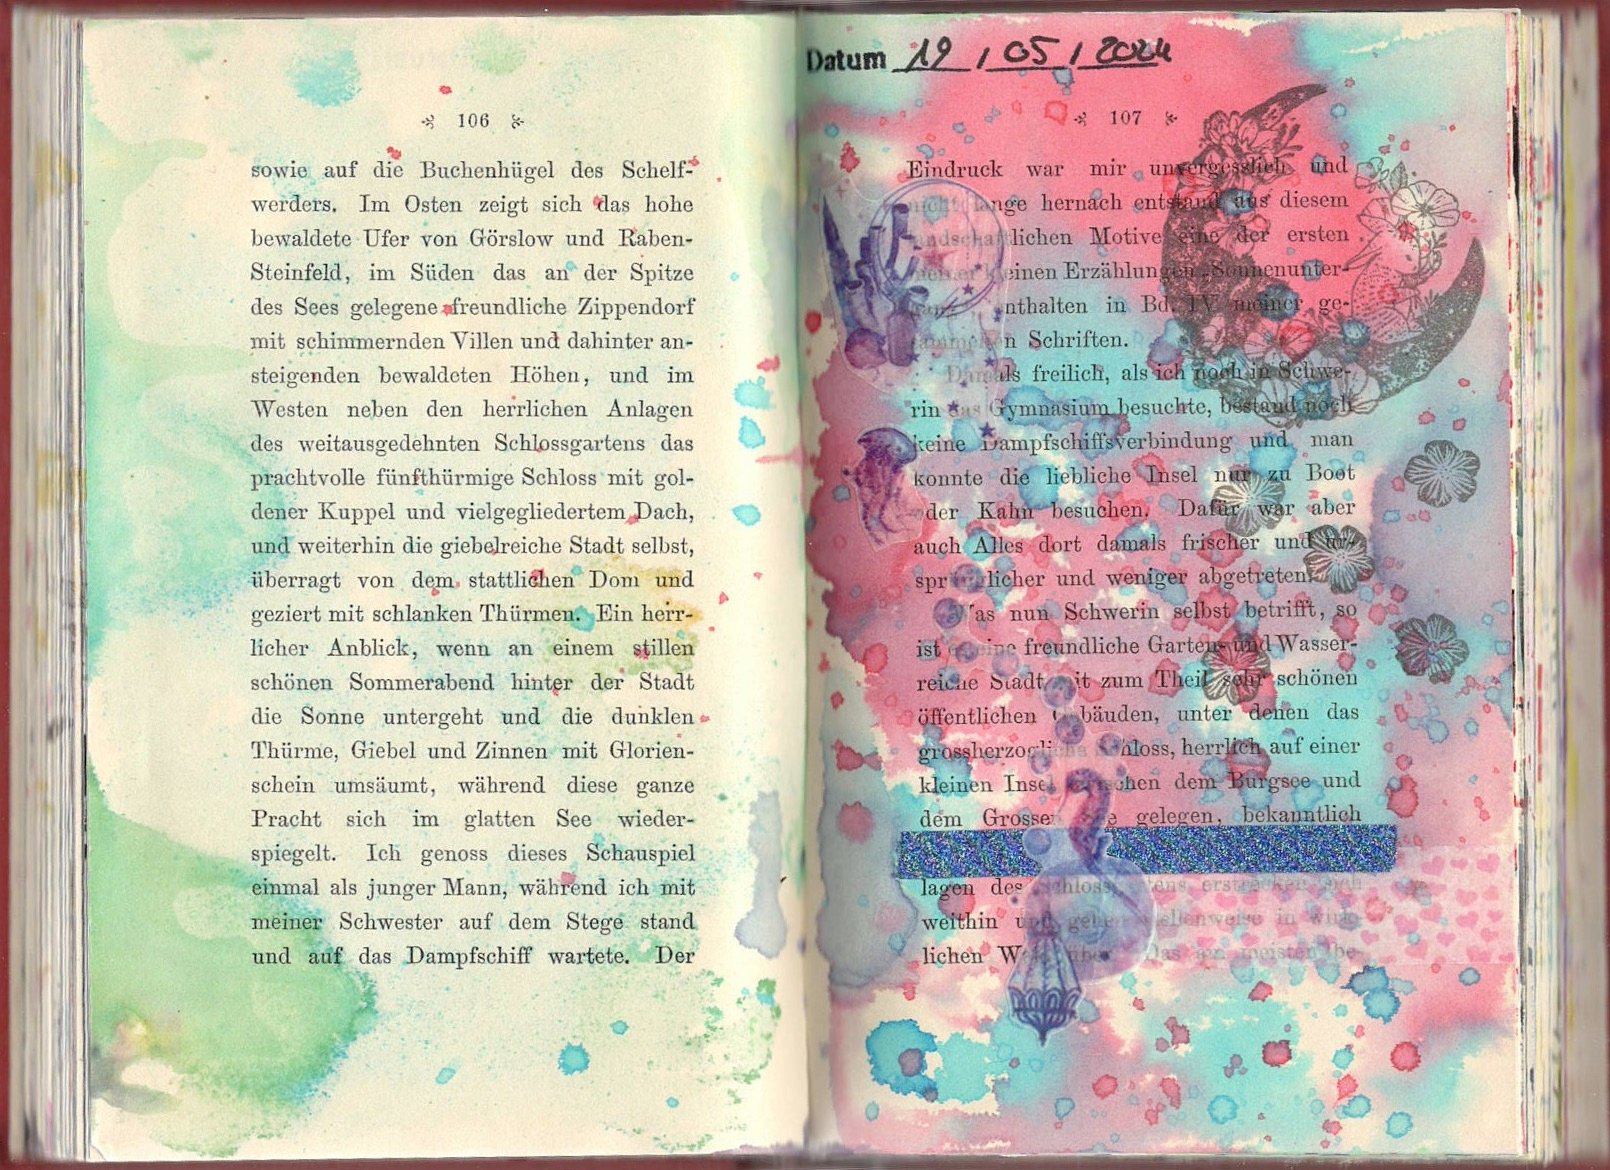 106
sowie auf die Buchenhügel des Schelf-
werders. Im Osten zeigt sich das hohe
bewaldete Ufer von Görslow und Raben-
Steinfeld, im Süden das an der Spitze
des Sees gelegene freundliche Zippendorf
mit schimmernden Villen und dahinter an-
steigenden bewaldeten Höhen, und im
Westen neben den herrlichen Anlagen
des weitausgedehnten Schlossgartens das
prachtvolle fünfthürmige Schloss mit gol-
dener Kuppel und vielgegliedertem Dach,
und weiterhin die giebelreiche Stadt selbst,
überragt von dem stattlichen Dom und
geziert mit schlanken Thürmen. Ein herr-
licher Anblick, wenn an einem stillen
schönen Sommerabend hinter der Stadt
die Sonne untergeht und die dunklen
Thürme, Giebel und Zinnen mit Glorien-
schein umsäumt, während diese ganze
Pracht sich im glatten See wieder-
spiegelt. Ich genoss dieses Schauspiel
einmal als junger Mann, während ich mit
meiner Schwester auf dem Stege stand
und auf das Dampfschiff wartete. Der
Datum 19/05/2024
107
Eindruck war mir unvergesslich und
nicht lange hernach entstand aus diesem
landschaftlichen Motive eine der ersten
meiner kleinen Erzählungen „Sonnenunter-
enthalten in Bd. IV meiner ge-
sammelten Schriften.
Damals freilich, als ich noch in Schwe-
rin das Gymnasium besuchte, bestand noch
keine Dampfschiffsverbindung und man
konnte die liebliche Insel nur zu Boot
oder Kahn besuchen. Dafür war aber
auch Alles dort damals frischer und ur-
sprünglicher und weniger abgetreten.
Was nun Schwerin selbst betrifft, so
ist es eine freundliche Garten- und Wasser-
reiche Stadt mit zum Theil sehr schönen
öffentlichen Gebäuden, unter denen das
grossherzogliche Schloss, herrlich auf einer
kleinen Insel zwischen dem Burgsee und
dem Grossen See gelegen, bekanntlich
lagen des Schlossgartens erstrecken sich
weithin und gehen stellenweise in wirk-
lichen Wald über. Das am meisten be-